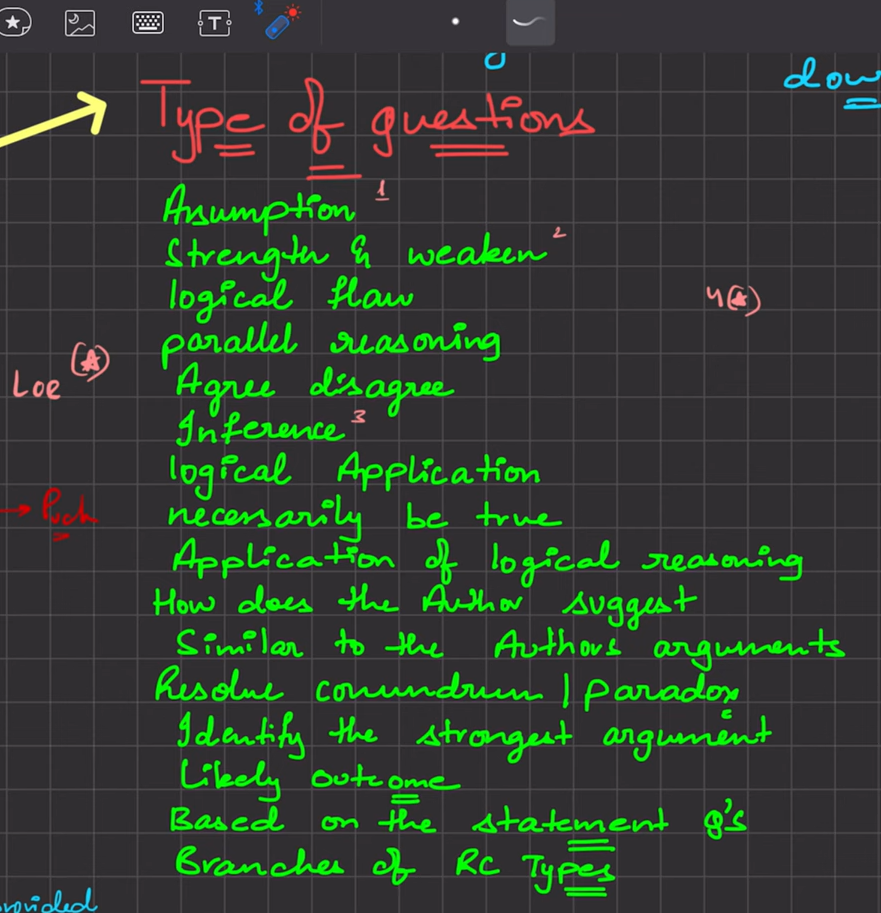 T
dow
Type of questions
Assumption 1
Strength & weaken 2
logical flaw
4(★)
parallel reasoning
LOE (★)
Agree disagree
Inference 3
logical Application
necessarily be true
Application of logical reasoning
How does the Author suggest
Similar to the Authors arguments
Resolve conundrum | Paradox
Identify the strongest argument
Likely outcome
Based on the statement Q's
Branches of RC Types
provided